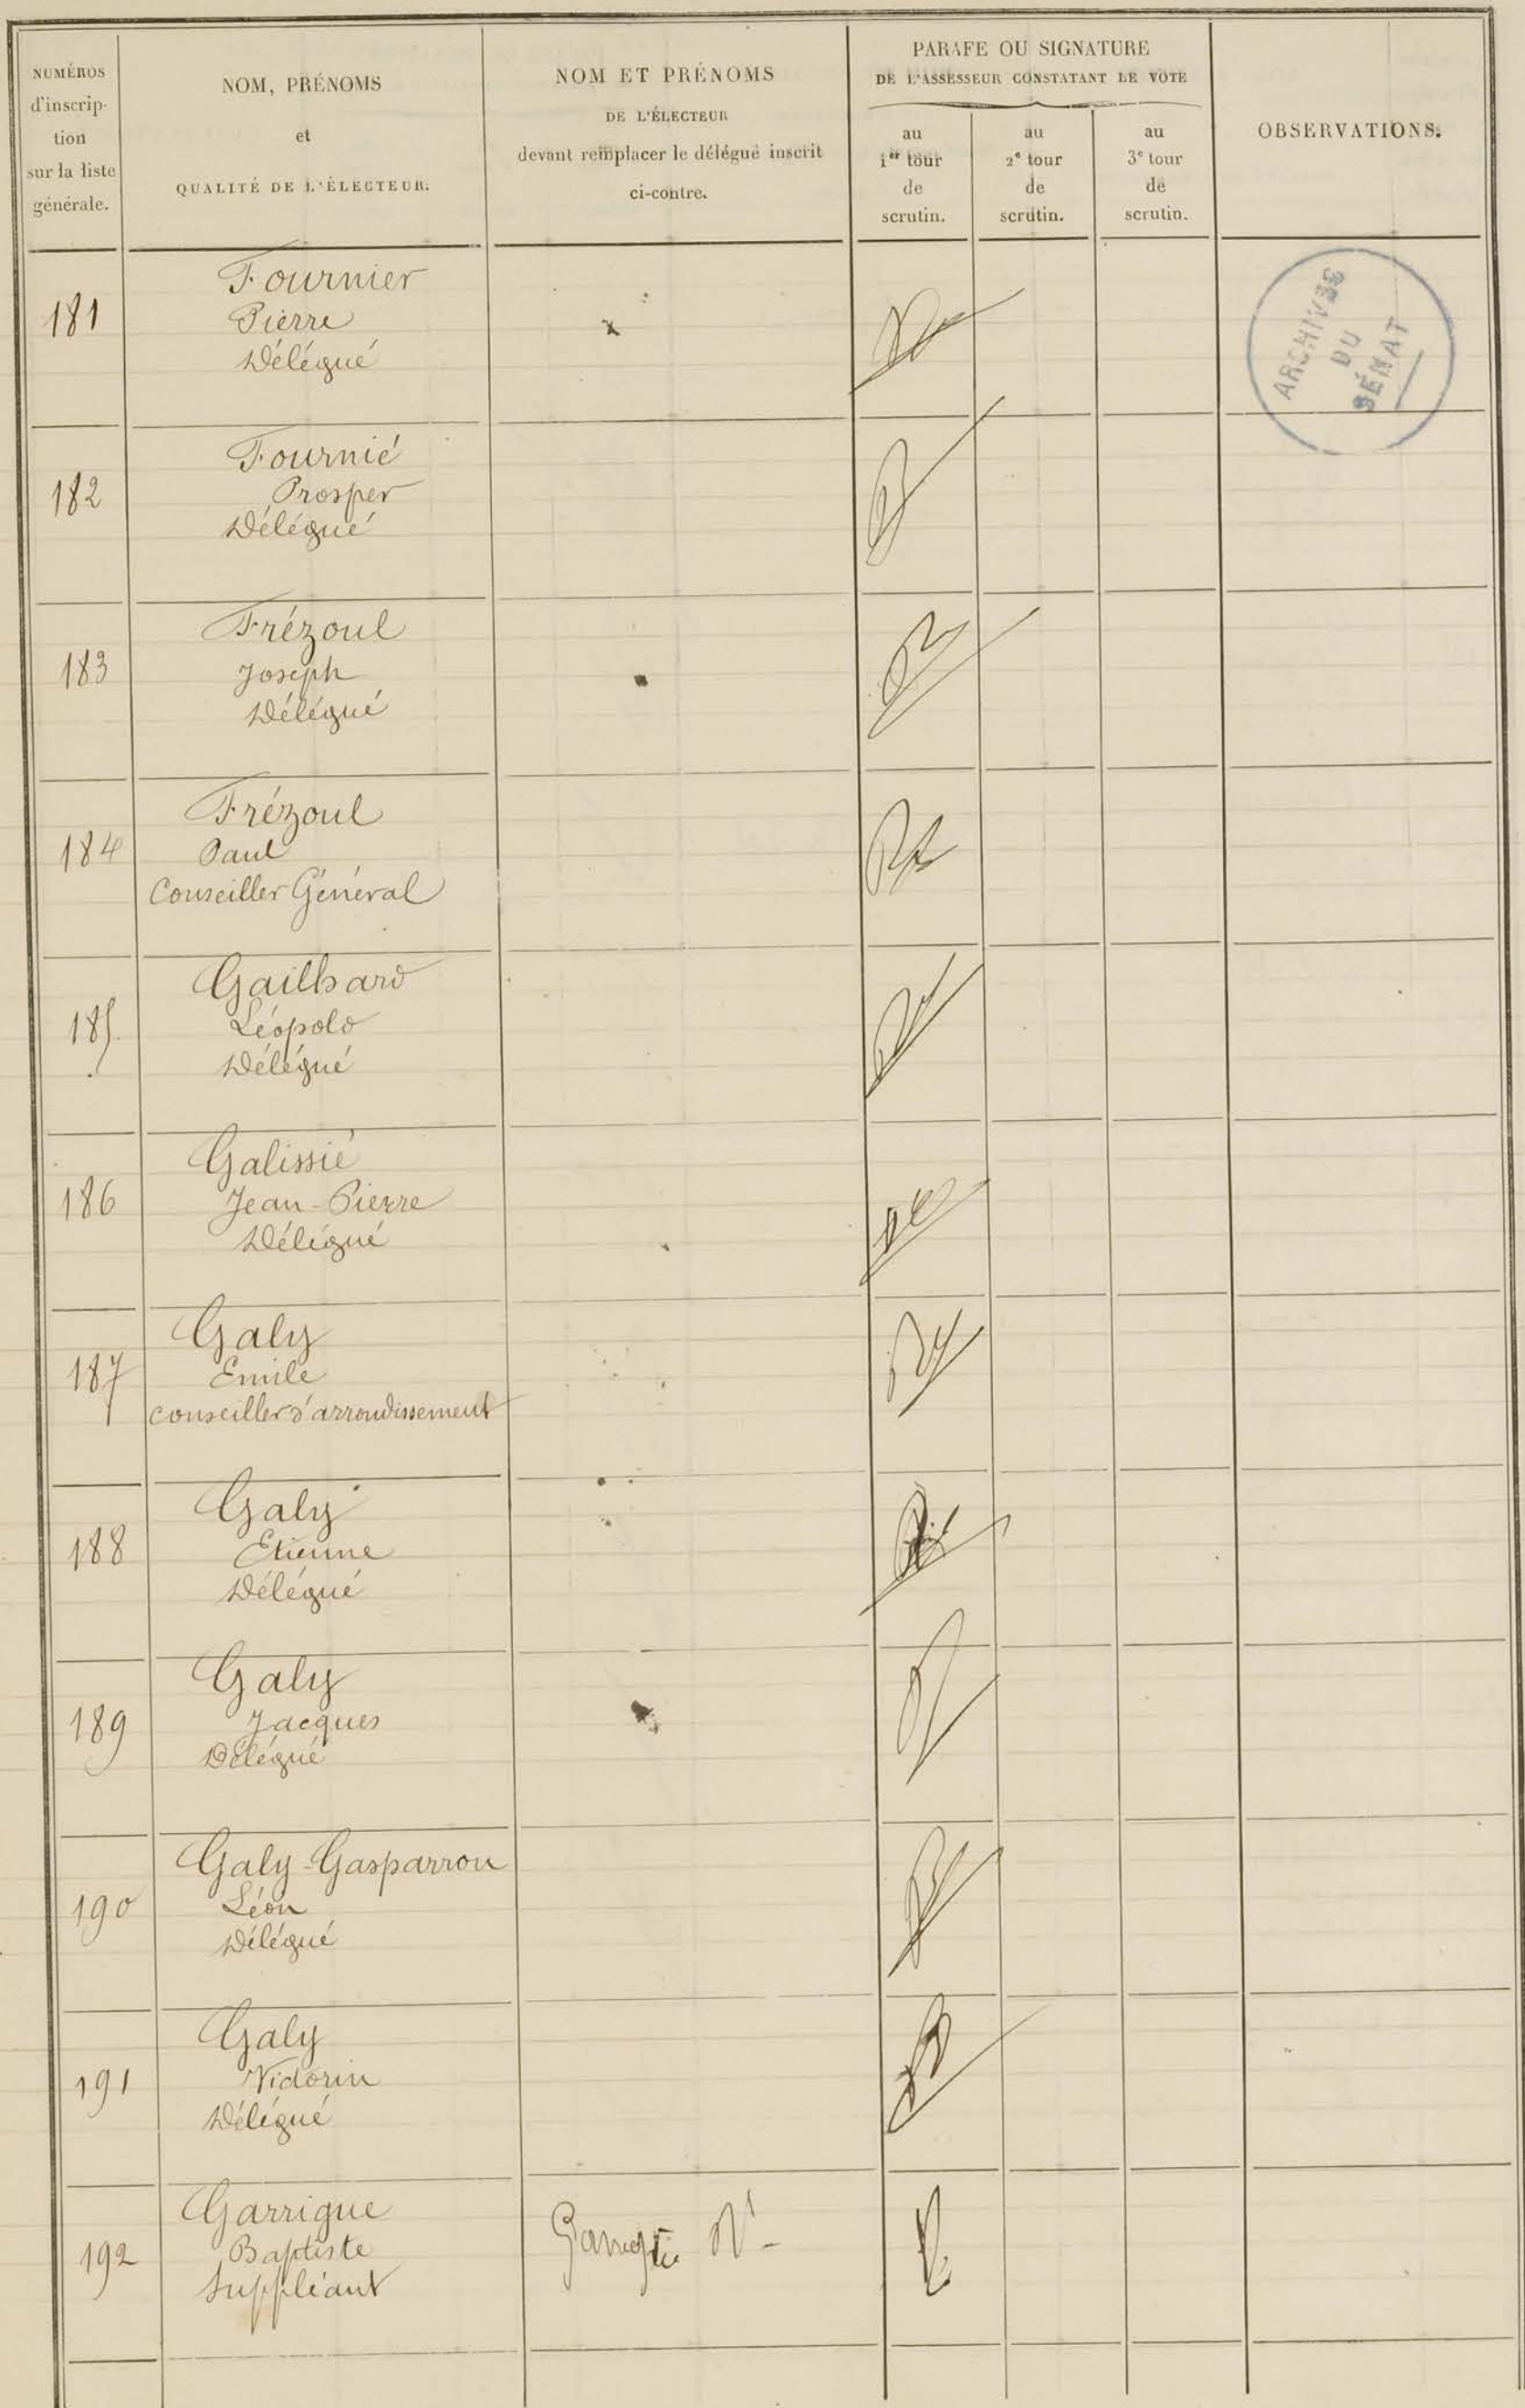 NUMÉROS
d'inscrip-
tion
sur la liste
générale.
NOM, PRÉNOMS
et
QUALITÉ DE L'ÉLECTEUR.
NOM ET PRÉNOMS
DE L'ÉLECTEUR
devant remplacer le délégué inscrit
ci-contre.
PARAFE OU SIGNATURE
DE L'ASSESSEUR CONSTATANT LE VOTE
au
1er tour
de
scrutin.
au
2e tour
de
scrutin.
au
3e tour
de
scrutin.
OBSERVATIONS.
ARCHIVES
DU
SÉNAT
181
Fournier
Pierre
Délégué
182
Fournié
Prosper
Délégué
183
Frézoul
Joseph
Délégué
184
Frézoul
Paul
Conseiller Général
185
Gailhard
Léopold
Délégué
186
Galissié
Jean-Pierre
Délégué
187
Galy
Emile
Conseiller d'arrondissement
188
Galy
Etienne
Délégué
189
Galy
Jacques
Délégué
190
Galy-Gasparrou
Léon
Délégué
191
Galy
Victorin
Délégué
192
Garrigue
Baptiste
Suppléant